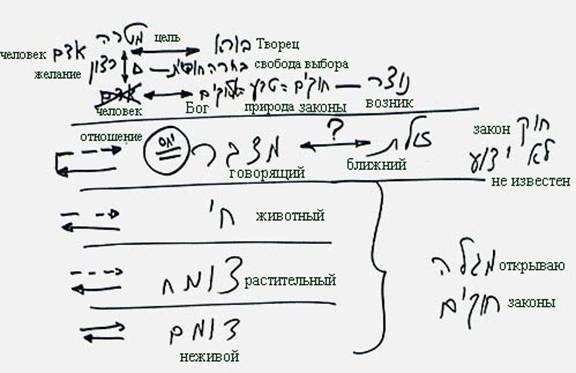 מטרה цель בורא Творец
человек אדם
желание רצון בחירה חופשית свобода выбора
אדם אלוקים = טבע = חוקים נוצר
человек Бог природа законы возник
отношение יחס מדבר ? זולת закон חוק
говорящий ближний לא ידוע
не известен
חי животный
צומח растительный מגלה открываю
חוקים законы
דומם
неживой